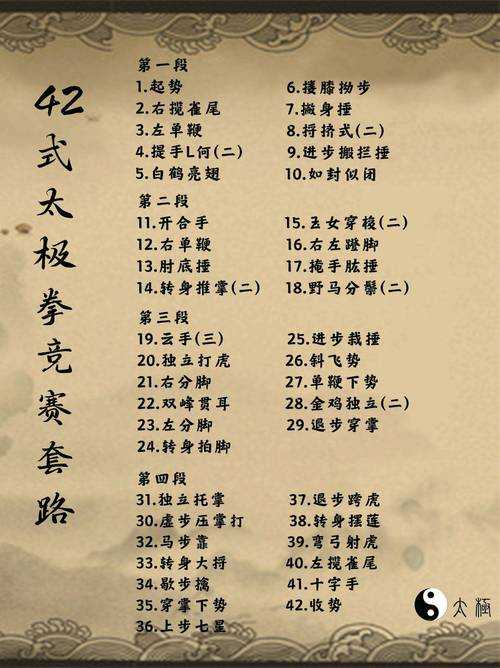 42式太极拳竞赛套路
第一段
1.起势
2.右揽雀尾
3.左单鞭
4.提手L何(二)
5.白鹤亮翅
6.搂膝拗步
7.撇身捶
8.捋挤式(二)
9.进步搬拦捶
10.如封似闭
第二段
11.开合手
12.右单鞭
13.肘底捶
14.转身推掌(二)
15.玉女穿梭(二)
16.右左蹬脚
17.掩手肱捶
18.野马分鬃(二)
第三段
19.云手(三)
20.独立打虎
21.右分脚
22.双峰贯耳
23.左分脚
24.转身拍脚
25.进步栽捶
26.斜飞势
27.单鞭下势
28.金鸡独立(二)
29.退步穿掌
第四段
31.独立托掌
30.虚步压掌打
32.马步靠
33.转身大捋
34.歇步擒
35.穿掌下势
36.上步七星
37.退步跨虎
38.转身摆莲
39.弯弓射虎
40.左揽雀尾
41.十字手
42.收势
太極